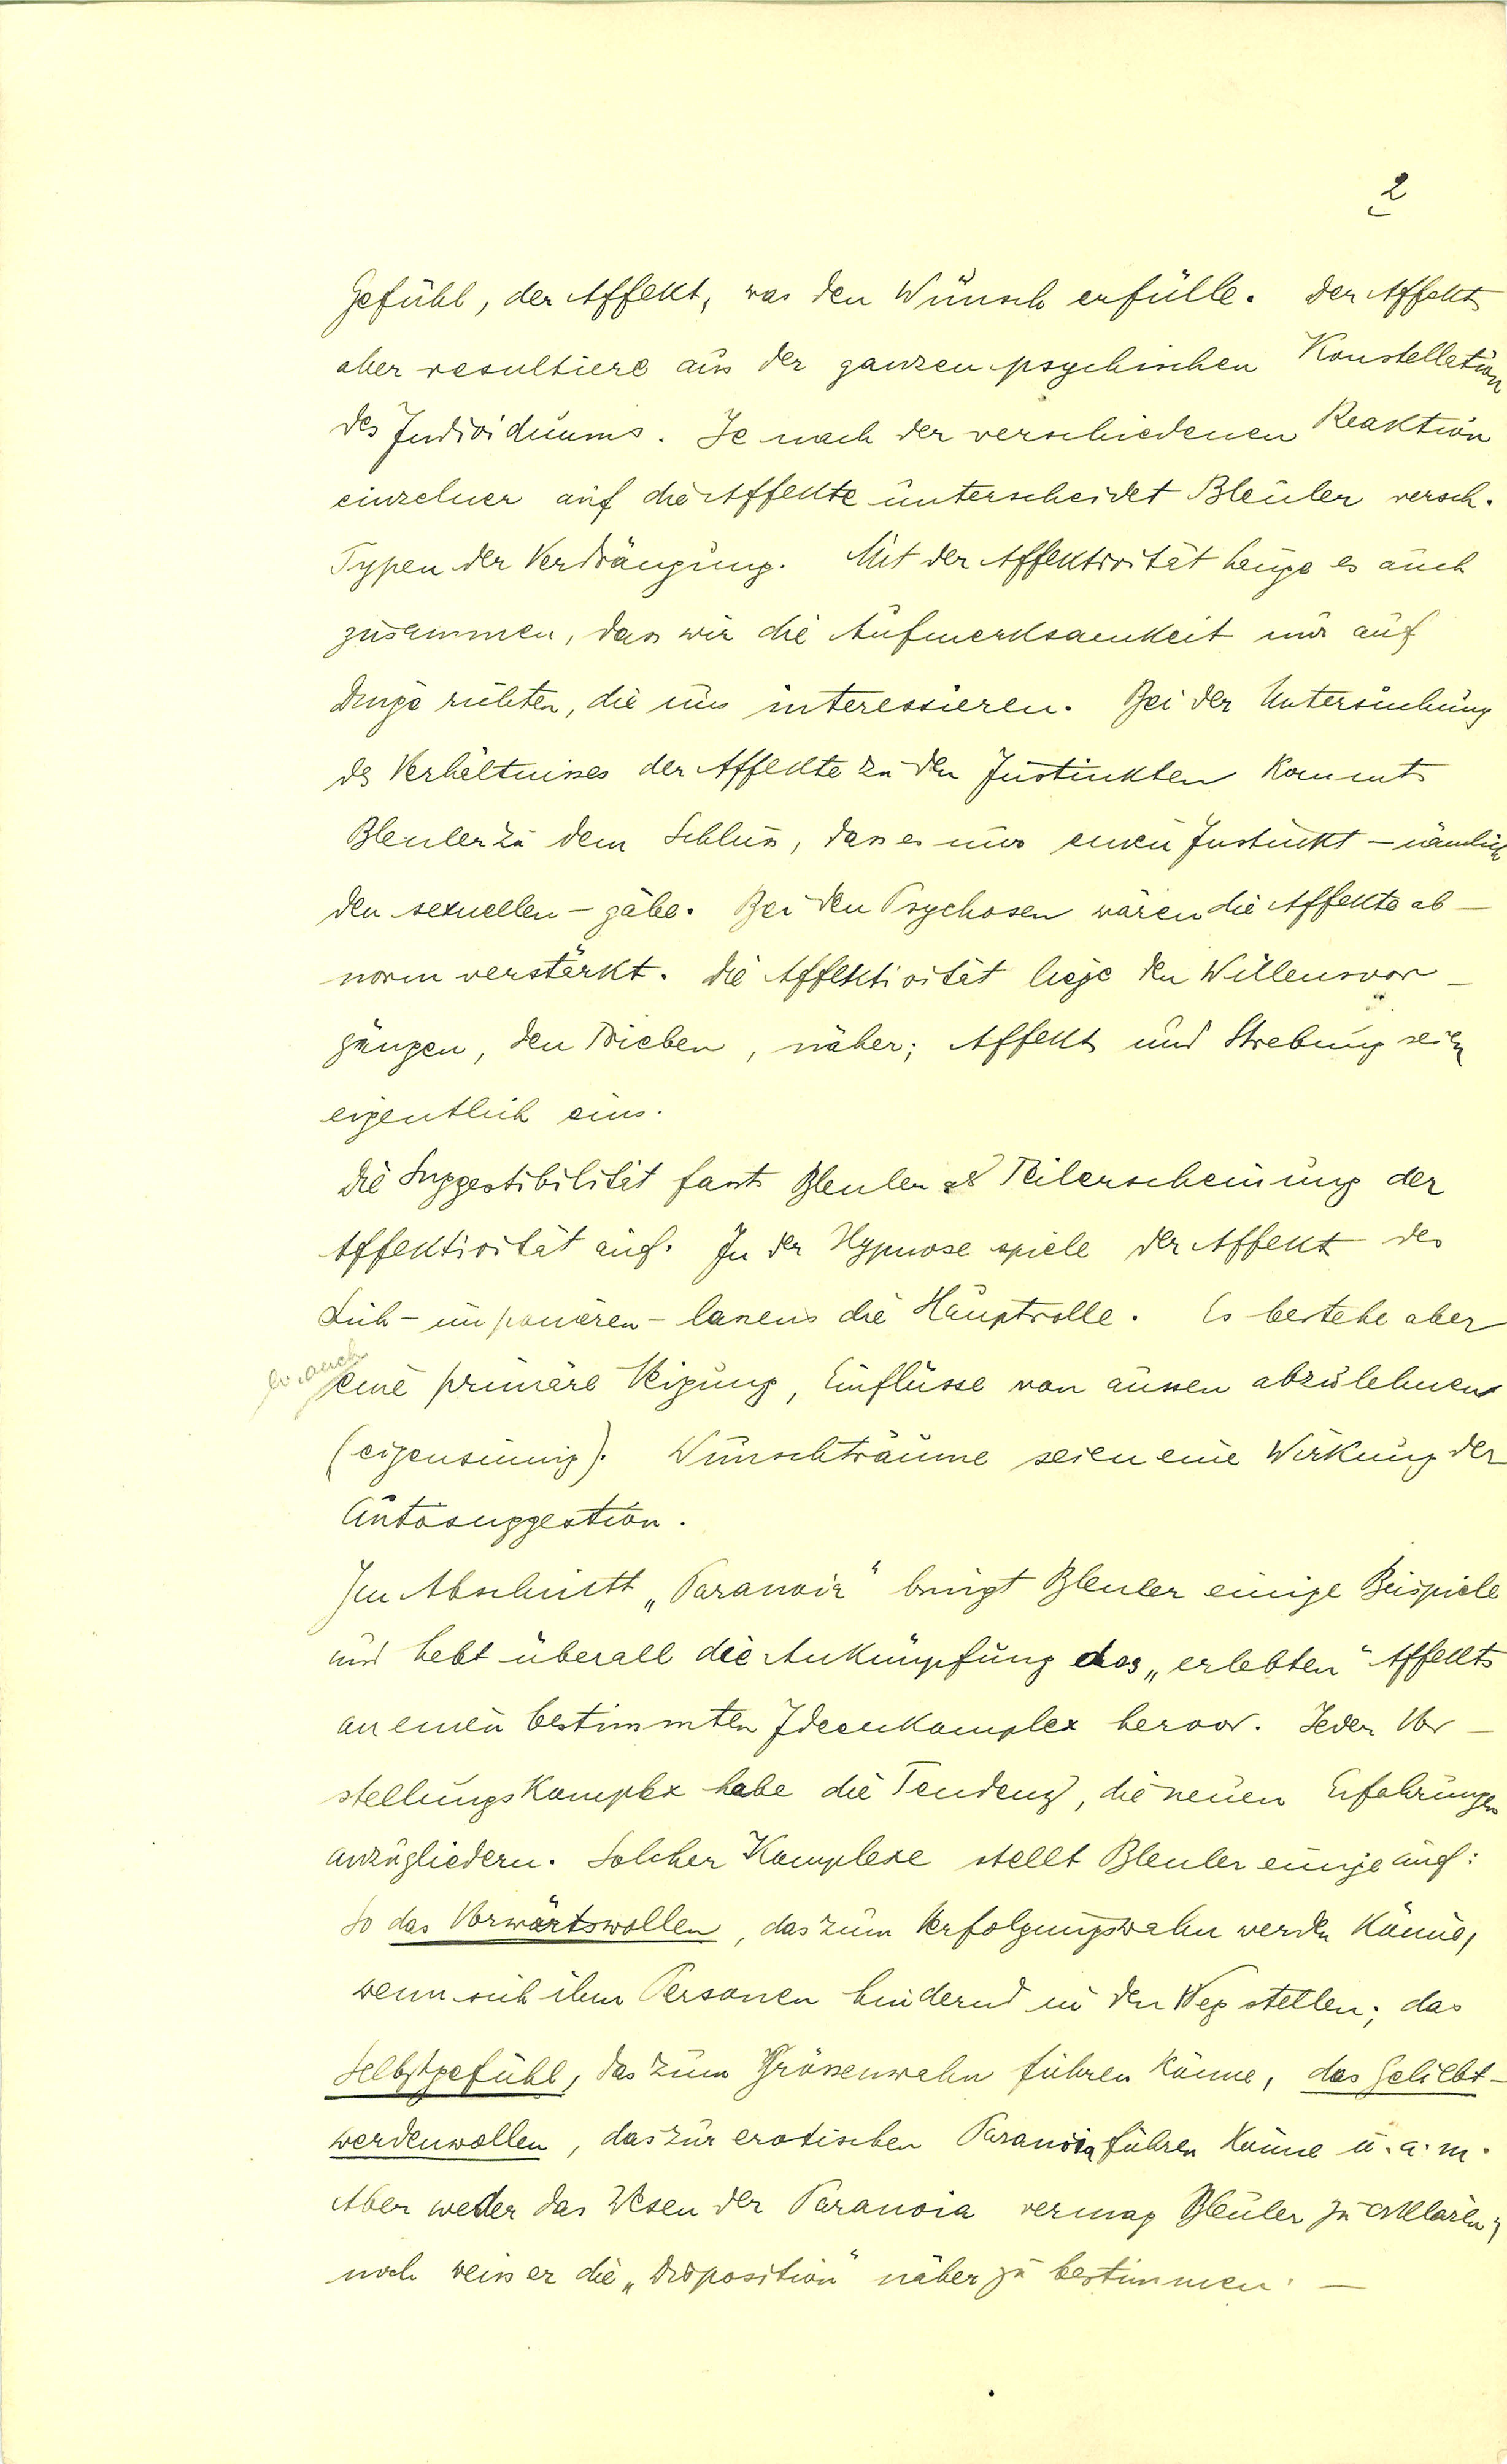 2
Gefühl, der Affekt, was den Wunsch erfülle. Der Affekt
aber resultiere aus der ganzen psychischen Konstellation
des Individuums. Je nach der verschiedenen Reaktion
einzelner auf die Affekte unterscheidet Bleuler versch.
Typen der Verdrängung. Mit der Affektivität henge es auch
zusammen, dass wir die Aufmerksamkeit nur auf
Dinge richten, die uns interessieren. Bei der Untersuchung
des Verhältnisses der Affekte zu den Instinkten kommt
Bleuler zu dem Schluss, dass es nur einen Instinkt – nämlich
den sexuellen – gäbe. Bei den Psychosen wären die Affekte ab-
norm verstärkt. Die Affektivität liege den Willensvor-
gängen, den Trieben, näher; Affekt und Strebung seien
eigentlich eins.
Die Suggestibilität fasst Bleuler als Teilerscheinung der
Affektivität auf. In der Hypnose spiele der Affekt des
Sich-imponieren-lassens die Hauptrolle. Es bestehe aber
auch
eine primäre Neigung, Einflüsse von aussen abzulehnen
(eigensinnig). Wunschträume seien eine Wirkung der
Autosuggestion.
Im Abschnitt „Paranoia“ bringt Bleuler einige Beispiele
und hebt überall die Anknüpfung des „erlebten“ Affekts
an einen bestimmten Ideenkomplex hervor. Jeder Vor-
stellungskomplex habe die Tendenz, die neuen Erfahrungen
anzugliedern. Solcher Komplexe stellt Bleuler einige auf:
So das Vorwärtswollen, das zum Verfolgungswahn werden könne,
wenn sich ihm Personen hindernd in den Weg stellen; das
Selbstgefühl, das zum Grössenwahn führen könne, das Geliebt-
werdenwollen, das zur erotischen Paranoia führen könne u. a. m.
Aber weder das Wesen der Paranoia vermag Bleuler zu erklären,
noch weiss er die „Disposition“ näher zu bestimmen. —